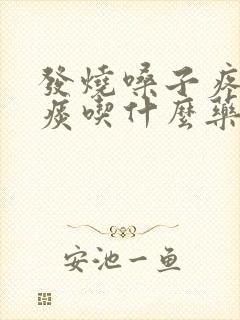 發燒嗓子疼
痰喫什麼藥
安池一鱼